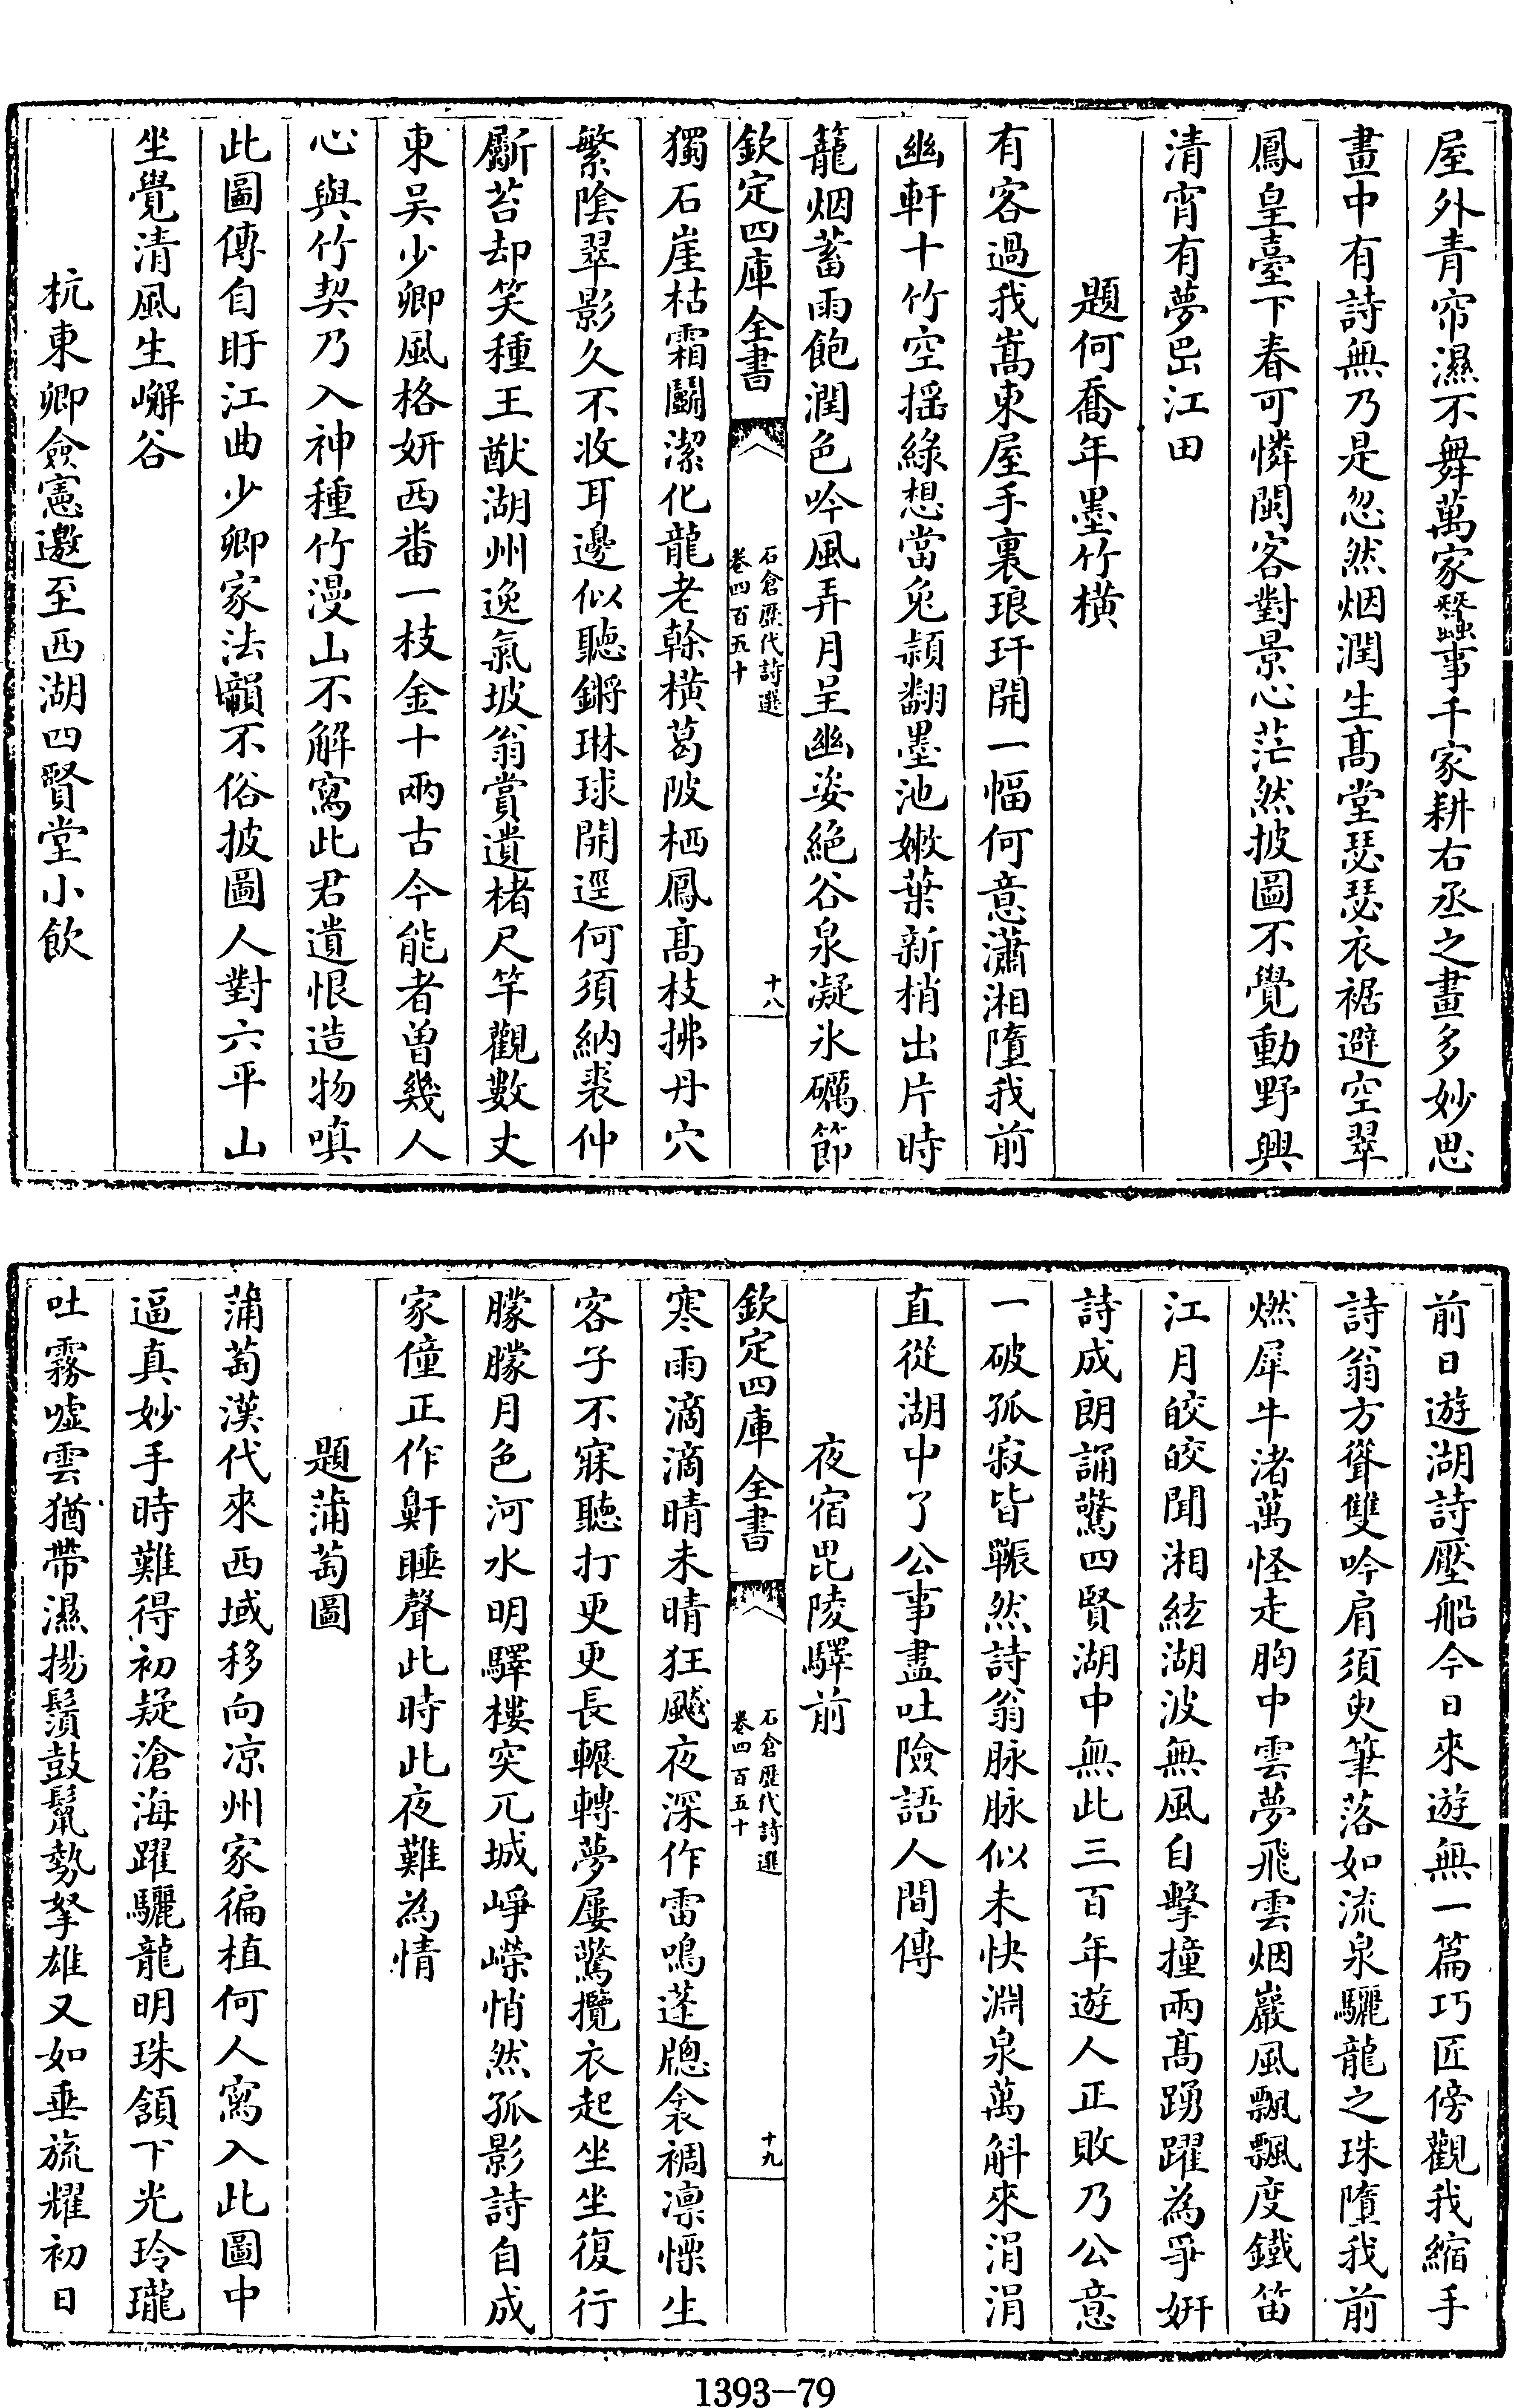 屋外青帘濕不舞萬家蠶事千家耕右丞之畫多妙思
畫中有詩無乃是忽然烟潤生髙堂瑟瑟衣裾避空翠
鳳皇臺下春可憐閩客對景心茫然披圖不覺動野興
清宵有夢岀江田
題何喬年墨竹橫
有客過我嵩東屋手裏琅玕開一幅何意瀟湘墮我前
幽軒十竹空揺綠想當兎穎翻墨池嫩葉新梢出片時
籠烟蓄雨飽潤色吟風弄月呈幽姿絶谷泉凝氷礪節
欽定四庫全書
石倉歴代詩選
卷四百五十
十八
獨石崖枯霜鬭潔化龍老榦橫葛陂栖鳳髙枝拂丹穴
繁陰翠影久不收耳邊似聽鏘琳球開逕何須納裘仲
斸苔却笑種王猷湖州逸氣坡翁賞遺楮尺竿觀數丈
東吴少卿風格妍西番一枝金十兩古今能者曽幾人
心與竹契乃入神種竹漫山不解寫此君遺恨造物嗔
此圖傳自盱江曲少卿家法韻不俗披圖人對六平山
坐覺清風生嶰谷
杭東卿僉憲邀至西湖四賢堂小飲
前日遊湖詩壓船今日來遊無一篇巧匠傍觀我縮手
詩翁方聳雙吟肩須臾筆落如流泉驪龍之珠墮我前
燃犀牛渚萬怪走胸中雲夢飛雲烟巖風飄飄度鐵笛
江月皎皎聞湘絃湖波無風自擊撞兩髙踴躍為爭妍
詩成朗誦驚四賢湖中無此三百年遊人正敗乃公意
一破孤寂皆囅然詩翁脉脉似未快淵泉萬斛來涓涓
直從湖中了公事盡吐險語人間傳
夜宿毘陵驛前
欽定四庫全書
石倉歴代詩選
卷四百五十
十九
寒雨滴滴晴未晴狂飈夜深作雷鳴蓬牕衾裯凛慄生
客子不寐聽打更更長輾轉夢屢驚攬衣起坐坐復行
朦朦月色河水明驛樓突兀城崢嶸悄然孤影詩自成
家僮正作鼾睡聲此時此夜難為情
題蒲萄圖
蒲萄漢代來西域移向凉州家徧植何人寫入此圖中
逼真妙手時難得初疑滄海躍驪龍明珠頷下光玲瓏
吐霧噓雲猶帶濕揚鬚鼓鬣勢拏雄又如垂旒耀初日
1393-79